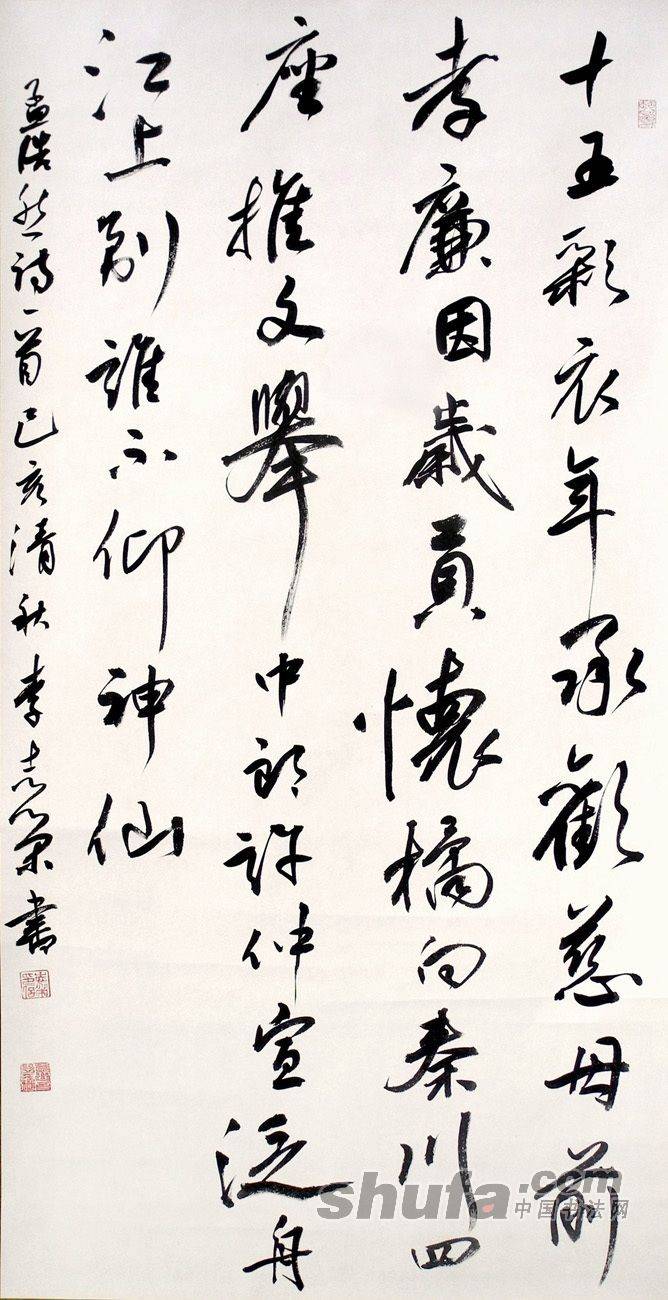 十五彩衣年承歡慈母前
孝廉因歲貢懷橘向秦川四
座推文舉中郎許仲宣泛舟
江上別誰不仰神仙
孟浩然詩一首己亥清秋李志榮書
shufa.com
中国书法网